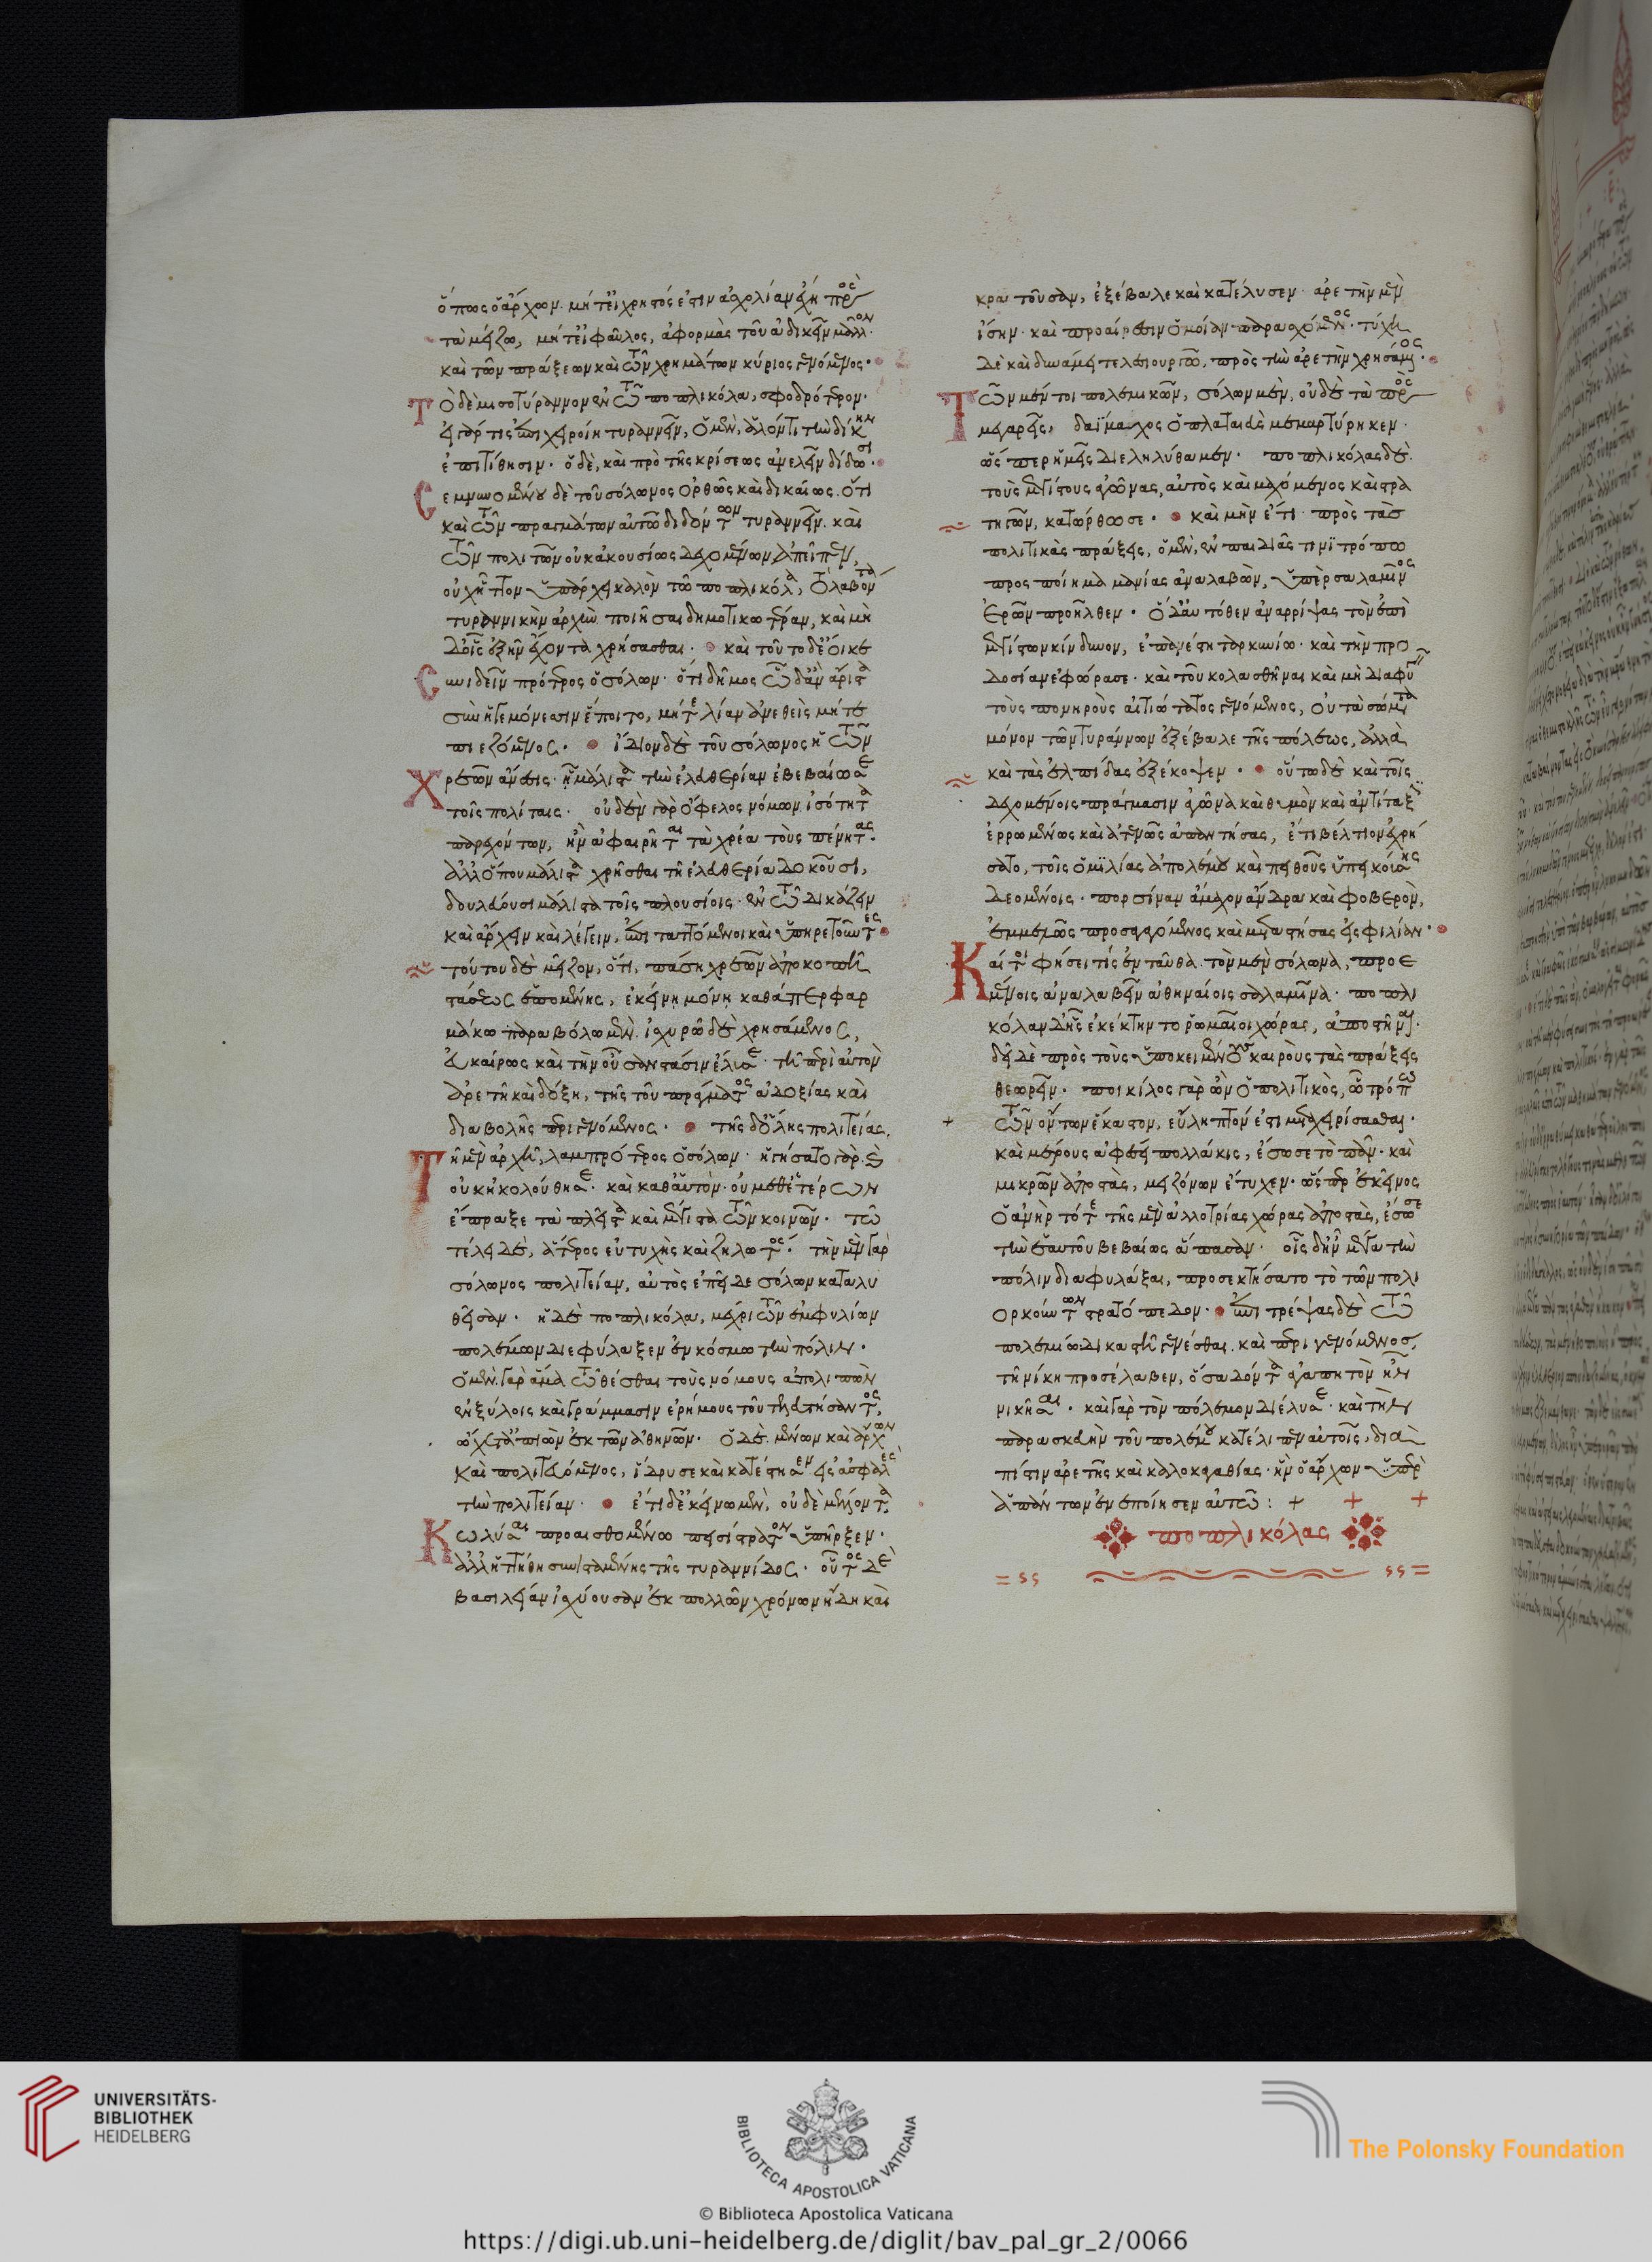 ὅπως ὁ ἄρχων μήτε εἰ χρηστός ἐστιν ἀσχολίαν ἔχῃ πρὸς
τὰ μείζω, μήτε εἰ φαῦλος, ἀφορμὰς τοῦ ἀδικεῖν μᾶλλον
καὶ τῶν πράξεων καὶ τῶν χρημάτων κύριος γενόμενος·
Τὸ δὲ μισοτύραννον ἐν τῶ ποπλικόλα, σφοδρότερον·
εἰ γάρ τις ἐπιχειροίη τυραννεῖν, ὁ μὲν, ἁλόντι τὴν δίκην
ἐπιτίθησιν· ὁ δὲ, καὶ πρὸ τῆς κρίσεως ἀνελεῖν δίδωσι·
Σεμνυνομένου δὲ τοῦ σόλωνος ὀρθῶς καὶ δικαίως. ὅτι
καὶ τῶν πραγμάτων αὐτῶ διδόντων τυραννεῖν. καὶ
τῶν πολιτῶν οὐκ ἀκουσίως δεχομένων ἀπεῖπεν,
οὐχ ἧττον ὑπάρχει καλὸν τῶ ποπλικόλα, τὸ λαβόντα
τυραννικὴν ἀρχὴν ποιῆσαι δημοτικωτέραν, καὶ μὴ
δὲ οἷς ἐξῆν ἔχοντα χρήσασθαι· καὶ τοῦτο δὲ ἔοικε
Συνιδεῖν πρότερος ὁ σόλων· ὅτι δῆμος ὧδ' ἂν ἄριστα
σὺν ἡγεμόνεσσιν ἕποιτο, μήτε λίαν ἀνεθεὶς μήτε
πιεζόμενος· ἴδιον δὲ τοῦ σόλωνος ἡ τῶν
Χρεῶν ἄνεσις· ἧ μάλιστα τὴν ἐλευθερίαν ἐβεβαίωσε
τοῖς πολίταις· οὐδὲν γὰρ ὄφελος νόμων ἰσότητα
παρεχόντων, ἣν ἀφαιρῆται τὰ χρέα τοὺς πένητας·
ἀλλ' ὅπου μάλιστα χρῆσθαι τῆ ἐλευθερία δοκοῦσι,
δουλεύουσι μάλιστα τοῖς πλουσίοις· ἐν τῶ δικάζειν
καὶ ἄρχειν καὶ λέγειν, ἐπιταττόμενοι καὶ ὑπηρετοῦντες·
τούτου δὲ μεῖζον, ὅτι, πάση χρεῶν ἀποκοπῆ
στάσεως ἑπομένης, ἐκείνη μόνη καθάπερ φαρ
μάκω παραβόλω μὲν, ἰσχυρῶ δὲ χρησάμενος,
εὐκαίρως καὶ τὴν οὖσαν στάσιν ἔλυσε· τῆ περὶ αὐτὸν
ἀρετῆ καὶ δόξη, τῆς τοῦ πράγματος ἀδοξίας καὶ
διαβολῆς περιγενόμενος· τῆς δὲ ὅλης πολιτείας,
Τῆ μὲν ἀρχῆ, λαμπρότερος ὁ σόλων· ἡγήσατο γὰρ. καὶ
οὐκ ἠκολούθησε· καὶ καθ' αὑτὸν· οὐ μεθ' ἑτέρων
ἔπραξε τὰ πλεῖστα καὶ μέγιστα τῶν κοινῶν· τῶ
τέλει δὲ, ἅτερος εὐτυχὴς καὶ ζηλωτός· τὴν μὲν γὰρ
σόλωνος πολιτείαν, αὐτὸς ἐπεῖδε σόλων καταλυ
θεῖσαν· ἡ δὲ ποπλικόλα, μέχρι τῶν ἐμφυλίων
πολέμων διεφύλαξεν ἐν κόσμω τὴν πόλιν·
ὁ μὲν γὰρ ἅμα τῶ θέσθαι τοὺς νόμους ἀπολιπὼν
ἐν ξύλοις καὶ γράμμασιν ἐρήμους τοῦ βοηθήσοντος,
ὤχετ' ἀπιὼν ἐκ τῶν ἀθηνῶν· ὁ δὲ μένων καὶ ἄρχων
καὶ πολιτευόμενος, ἵδρυσε καὶ κατέστησεν εἰς ἀσφαλὲς
τὴν πολιτείαν· ἔτι δ' ἐκείνω μὲν, οὐδὲ μέλλοντα
Κωλύσαι προαισθομένω πεισίστρατον ὑπῆρξεν·
ἀλλ' ἡττήθη συνισταμένης τῆς τυραννίδος· οὗτος δὲ
βασιλείαν ἰσχύουσαν ἐκ πολλῶν χρόνων ἤδη καὶ
κρατοῦσαν, ἐξέβαλε καὶ κατέλυσεν· ἀρετὴν μὲν
ἴσην· καὶ προαίρεσιν ὁμοίαν παρασχόμενος· τύχη
δὲ καὶ δυνάμει τελεσιουργῶ, πρὸς τὴν ἀρετὴν χρησάμενος·
Τῶν μέντοι πολεμικῶν, σόλωνι μὲν, οὐδὲ τὰ πρὸς
μεγαρεῖς, δαΐμαχος ὁ πλαταιεὺς μεμαρτύρηκεν·
ὥσπερ ἡμεῖς διεληλύθαμεν· ποπλικόλας δὲ.
τοὺς μεγίστους ἀγῶνας, αὐτὸς καὶ μαχόμενος καὶ στρα
τηγῶν, κατώρθωσε· καὶ μὴν ἔτι πρὸς τὰς
πολιτικὰς πράξεις, ὁ μὲν, ἐν παιδιᾶς τινὶ τρόπω
προσποίημα μανίας ἀναλαβὼν, ὑπὲρ σαλαμῖνος
ἐρῶν προῆλθεν· ὁ δ' αὐτόθεν ἀναρρίψας τὸν ἐπὶ
μεγίστων κίνδυνον, ἐπανέστη ταρκυνίω· καὶ τὴν προ
δοσίαν ἐφώρασε· καὶ τοῦ κολασθῆναι καὶ μὴ διαφυγεῖν
τοὺς πονηροὺς αἰτιώτατος γενόμενος, οὐ τὰ σώματα
μόνον τῶν τυράννων ἐξέβαλε τῆς πόλεως, ἀλλὰ
καὶ τὰς ἐλπίδας ἐξέκοψεν· οὕτω δὲ καὶ τοῖς
δεχομένοις πράγμασιν ἀγῶνα καὶ θυμὸν καὶ ἀντίταξιν
ἐρρωμένως καὶ ἀτενῶς ἀπαντήσας, ἔτι βέλτιον ἐχρή
σατο, τοῖς ὁμιλίας ἀπολέμου καὶ πειθοῦς ὑπεικούσης
δεομένοις· πορσίναν ἄμαχον ἄνδρα καὶ φοβερὸν,
ἐμμελῶς προσαγαγόμενος καὶ μεταστήσας εἰς φιλίαν·
Καίτοι φήσει τίς ἐνταῦθα τὸν μὲν σόλωνα, προε
μένοις ἀναλαβεῖν ἀθηναίοις σαλαμῖνα· ποπλι
κόλαν δὲ ἧς ἐκέκτηντο ῥωμαῖοι χώρας, ἀποστῆναι·
δεῖ δὲ πρὸς τοὺς ὑποκειμένους καιροὺς τὰς πράξεις
θεωρεῖν· ποικίλος γὰρ ὢν ὁ πολιτικὸς, ὧ τρόπω
τῶν ὄντων ἕκαστον, εὔληπτόν ἐστι μεταχειρίσασθαι·
καὶ μέρους ἀφέσει πολλάκις, ἔσωσε τὸ πᾶν· καὶ
μικρῶν ἀποστὰς, μειζόνων ἔτυχεν· ὥσπερ ἐκεῖνος
ὁ ἀνὴρ τότε τῆς μὲν ἀλλοτρίας χώρας ἀποστὰς, ἔσωσε
τὴν ἑαυτοῦ βεβαίως ἅπασαν· οἷς δ' ἦν μέγα τὴν
πόλιν διαφυλάξαι, προσεκτήσατο τὸ τῶν πολι
ορκούντων στρατόπεδον· ἐπιτρέψας δὲ τῶ
πολεμίω δικαστῆ γενέσθαι. καὶ περιγενόμενος,
τῆ νίκη προσέλαβεν, ὅσα δόντα ἀγαπητὸν ἦν
νικῆσαι· καὶ γὰρ τὸν πόλεμον διέλυσε· καὶ τὴν
παρασκευὴν τοῦ πολέμου κατέλιπεν αὐτοῖς, διὰ
πίστιν ἀρετῆς καὶ καλοκαγαθίας· ἣν ὁ ἄρχων ὑπὲρ
ἁπάντων ἐνεποίησεν αὐτῶ: + + +
ποπλικόλας
UNIVERSITÄTS-
BIBLIOTHEK
HEIDELBERG
BIBLIOTECA APOSTOLICA VATICANA
The Polonsky Foundation
© Biblioteca Apostolica Vaticana
https://digi.ub.uni-heidelberg.de/diglit/bav_pal_gr_2/0066